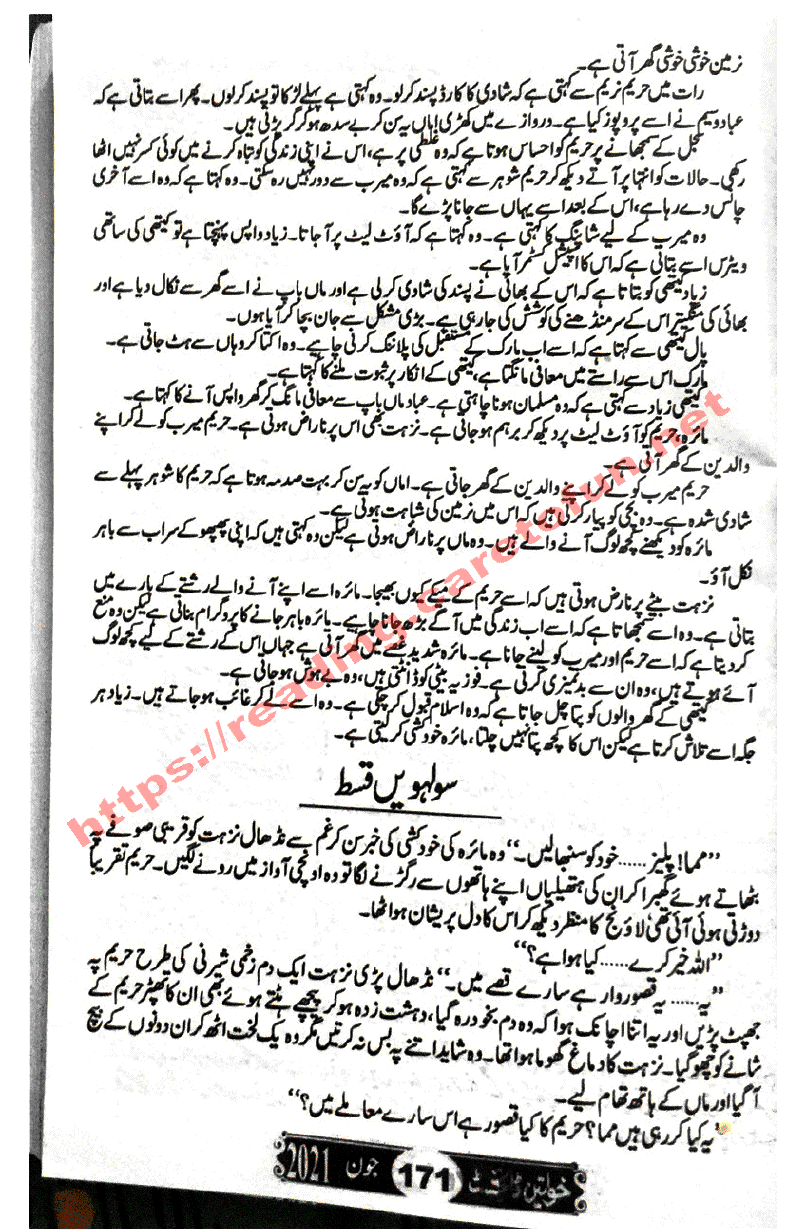 نرمین خوشی خوشی گھر آتی ہے۔
رات میں حریم نریم سے کہتی ہے کہ شادی کا کارڈ پسند کر لو۔ وہ کہتی ہے پہلے لڑکا تو پسند کرلوں۔ پھر اسے بتاتی ہے کہ
عباد وسیم نے اسے پروپوز کیا ہے۔ دروازے میں کھڑی اماں یہ سن کر بے سدھ ہو کر گر پڑتی ہیں۔
کے سمجھانے پر حریم کو احساس ہوتا ہے کہ وہ غلطی پر ہے، اس نے اپنی زندگی کو تباہ کرنے میں کوئی کسر نہیں اٹھا
رکھی۔ حالات کو انتہا پر آتے دیکھ کر حریم شوہر سے کہتی ہے کہ وہ میرب سے دور نہیں رہ سکتی۔ وہ کہتا ہے کہ وہ اسے آخری
چانس دے رہا ہے، اس کے بعد اسے یہاں سے جانا پڑے گا۔
وہ میرب کے لیے شاپنگ کا کہتی ہے۔ وہ کہتا ہے کہ آؤٹ لیٹ پر آ جانا۔ زیاد واپس پہنچتا ہے تو کیتھی کی ساتھی
ویٹرس اسے بتاتی ہے کہ اس کا اسپیشل کسٹمر آیا ہے۔
زیاد کیتھی کو بتاتا ہے کہ اس کے بھائی نے پسند کی شادی کرلی ہے اور ماں باپ نے اسے گھر سے نکال دیا ہے اور
بھائی کی منگیتر اس کے سر منڈھنے کی کوشش کی جا رہی ہے۔ بڑی مشکل سے جان بچا کر آیا ہوں۔
پال کیتھی سے کہتا ہے کہ اسے اب مارک کے مستقبل کی پلاننگ کرنی چاہیے۔ وہ اکتا کر وہاں سے ہٹ جاتی ہے۔
مارک اس سے راستے میں معافی مانگتا ہے، کیتھی کے انکار پر ثبوت ملنے کا کہتا ہے۔
کیتھی زیاد سے کہتی ہے کہ وہ مسلمان ہونا چاہتی ہے۔ عباد ماں باپ سے معافی مانگ کر گھر واپس آنے کا کہتا ہے۔
مائرہ، حریم کو آؤٹ لیٹ پر دیکھ کر برہم ہو جاتی ہے۔ نزہت بھی اس پر ناراض ہوتی ہے۔ حریم میرب کو لے کر اپنے
والدین کے گھر آتی ہے۔
حریم میرب کو لے کر اپنے والدین کے گھر جاتی ہے۔ اماں کو یہ سن کر بہت صدمہ ہوتا ہے کہ حریم کا شوہر پہلے سے
شادی شدہ ہے۔ وہ بچی کو پیار کرتی ہیں کہ اس میں نرمین کی شباہت ہوتی ہے۔
مائرہ کو دیکھنے کچھ لوگ آنے والے ہیں۔ وہ ماں پر ناراض ہوتی ہے لیکن وہ کہتی ہیں کہ اپنی پھپھو کے سراب سے باہر
نکل آؤ۔
نزہت بیٹے پر ناراض ہوتی ہیں کہ اسے حریم کے میکے کیوں بھیجا۔ مائرہ اسے اپنے آنے والے رشتے کے بارے میں
بتاتی ہے۔ وہ اسے سمجھاتا ہے کہ اسے اب زندگی میں آگے بڑھ جانا چاہیے۔ مائرہ باہر جانے کا پروگرام بناتی ہے لیکن وہ منع
کر دیتا ہے کہ اسے حریم اور میرب کو لینے جانا ہے۔ مائرہ شدید غصے میں گھر آتی ہے جہاں اس کے رشتے کے لیے کچھ لوگ
آئے ہوتے ہیں، وہ ان سے بدتمیزی کرتی ہے۔ فوزیہ بیٹی کو ڈانٹتی ہیں، وہ بے ہوش ہو جاتی ہے۔
کیتھی کے گھر والوں کو پتا چل جاتا ہے کہ وہ اسلام قبول کر چکی ہے۔ وہ اسے لے کر غائب ہو جاتے ہیں۔ زیاد ہر
جگہ اسے تلاش کرتا ہے لیکن اس کا کچھ پتا نہیں چلتا، مائرہ خود کشی کرلیتی ہے۔
سولہویں قسط
”مما! پلیز...... خود کو سنبھالیں۔“ وہ مائرہ کی خود کشی کی خبر سن کر غم سے نڈھال نزہت کو قریبی صوفے پہ
بٹھاتے ہوئے گھبرا کر ان کی ہتھیلیاں اپنے ہاتھوں سے رگڑنے لگا تو وہ اونچی آواز میں رونے لگیں۔ حریم تقریباً
دوڑتی ہوئی آئی تھی، لاؤنج کا منظر دیکھ کر اس کا دل پریشان ہوا تھا۔
”اللہ خیر کرے...... کیا ہوا ہے؟“
”یہ...... یہ قصوروار ہے سارے قصے میں۔“ نڈھال پڑی نزہت ایک دم زخمی شیرنی کی طرح حریم پہ
جھپٹ پڑیں اور یہ اتنا اچانک ہوا کہ وہ دم بخود رہ گیا، دہشت زدہ ہو کر پیچھے ہٹتے ہوئے بھی ان کا تھپڑ حریم کے
شانے کو چھو گیا۔ نزہت کا دماغ گھوما ہوا تھا۔ وہ شاید اتنے پہ بس نہ کرتیں مگر وہ یک لخت اٹھ کر ان دونوں کے بیچ
آ گیا اور ماں کے ہاتھ تھام لیے۔
”یہ کیا کر رہی ہیں مما؟ حریم کا کیا قصور ہے اس سارے معاملے میں؟“
خواتین ڈائجسٹ 171 جون 2021
https://reading.caretofun.net